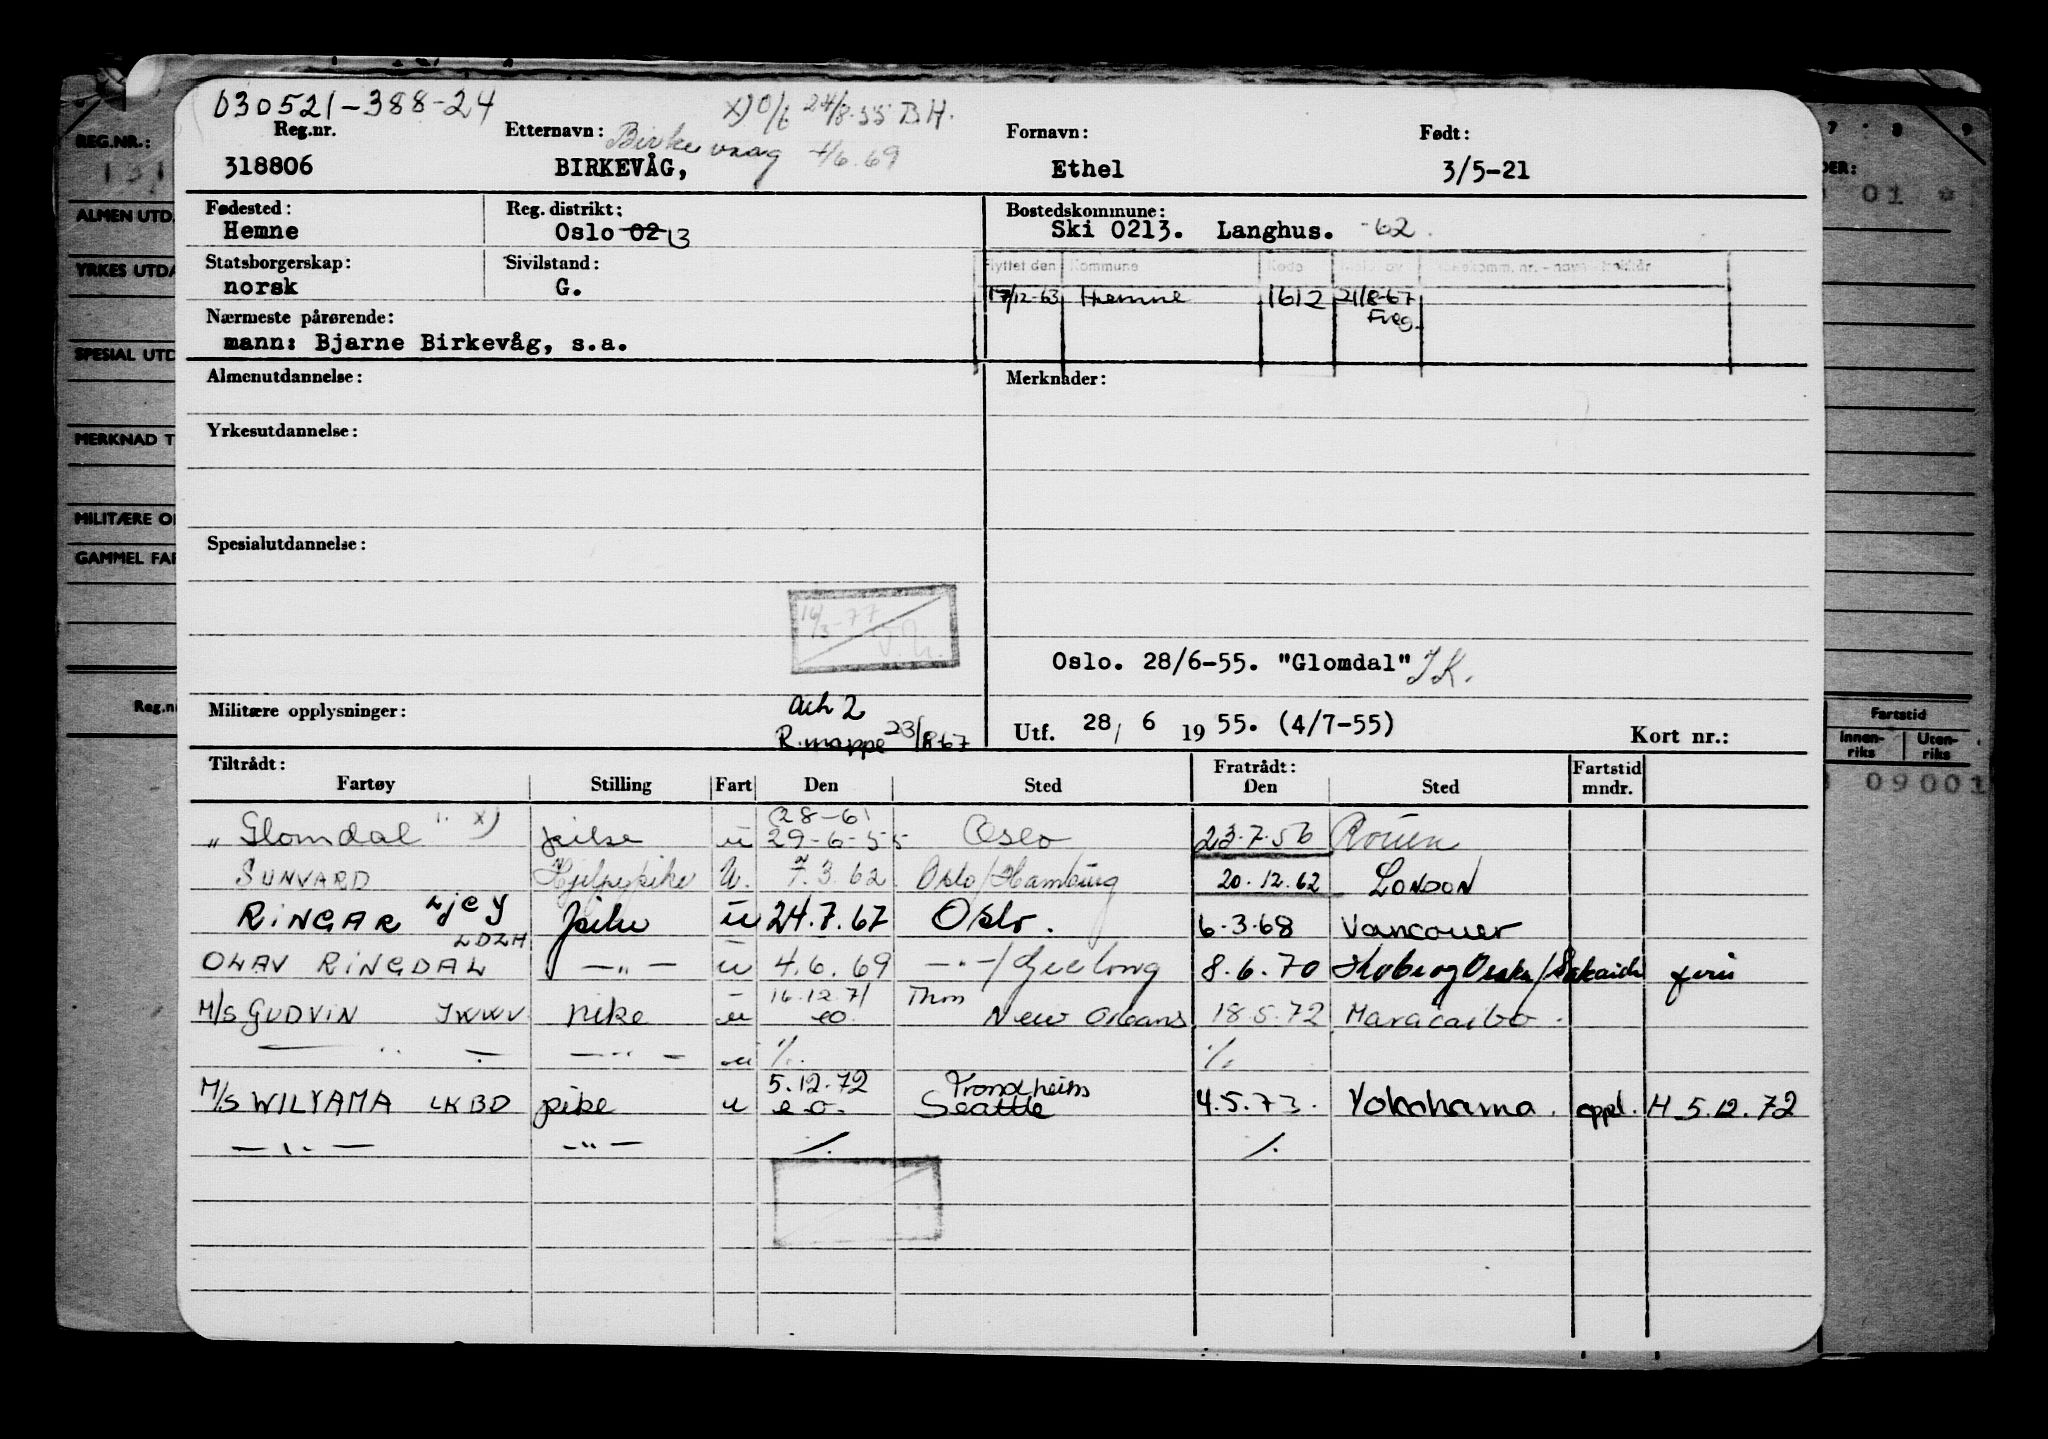 030521-388-24 x) 0/6 24/8-55 B.H.
REG.NR.: Reg.nr. Etternavn: Birkevaag 4/6.69 Fornavn: Født: 7 8 9
318806 BIRKEVÅG, Ethel 3/5-21
01 *
ALMEN UTD. Fødested: Reg. distrikt: Bostedskommune:
Hemne Oslo 02 13 Ski 0213. Langhus. -62.
YRKES UTDA Statsborgerskap: Sivilstand: Flyttet den Kommune Kode
norsk G. 17/12-63 Hemne 1612 21/8-67
Freg.
Nærmeste pårørende:
mann: Bjarne Birkevåg, s.a.
SPESIAL UTD
Almenutdannelse: Merknader:
MERKNAD T Yrkesutdannelse:
MILITÆRE O
GAMMEL FAR Spesialutdannelse:
16/3-77
Oslo. 28/6-55. "Glomdal" J.K.
Militære opplysninger: Ach 2
R.mappe 23/8-67 Utf. 28/ 6 1955. (4/7-55) Kort nr.:
Reg.n Fartstid
Innen-riks Uten-riks
09001
Tiltrådt: Fratrådt: Fartstid
Fartøy Stilling Fart Den Sted Den Sted mndr.
"Glomdal" x) pike u (28-6) 29-6-55 Oslo 23.7.56 Rouen
SUNVARD Hjelpepike U. 7.3.62 Oslo/Hamburg 20.12.62 LONDON
RINGAR LJCY pike u 24.7.67 Oslo. 6.3.68 Vancouver
OLAV RINGDAL LDZH — " — u 4.6.69 — " —/Geelong 8.6.70 Kobe og Osaka/Sakaide ferie
M/S GUDVIN JWWV pike u 16.12.71 eo. Thm New Orleans 18.5.72 Maracaibo.
— " — — " — u %. %.
M/S WILYAMA LKBD pike u 5.12.72 e.o. Trondheim Seattle 4.5.73. Yokohama. oppl. H 5.12.72
— " — — " — %. %.